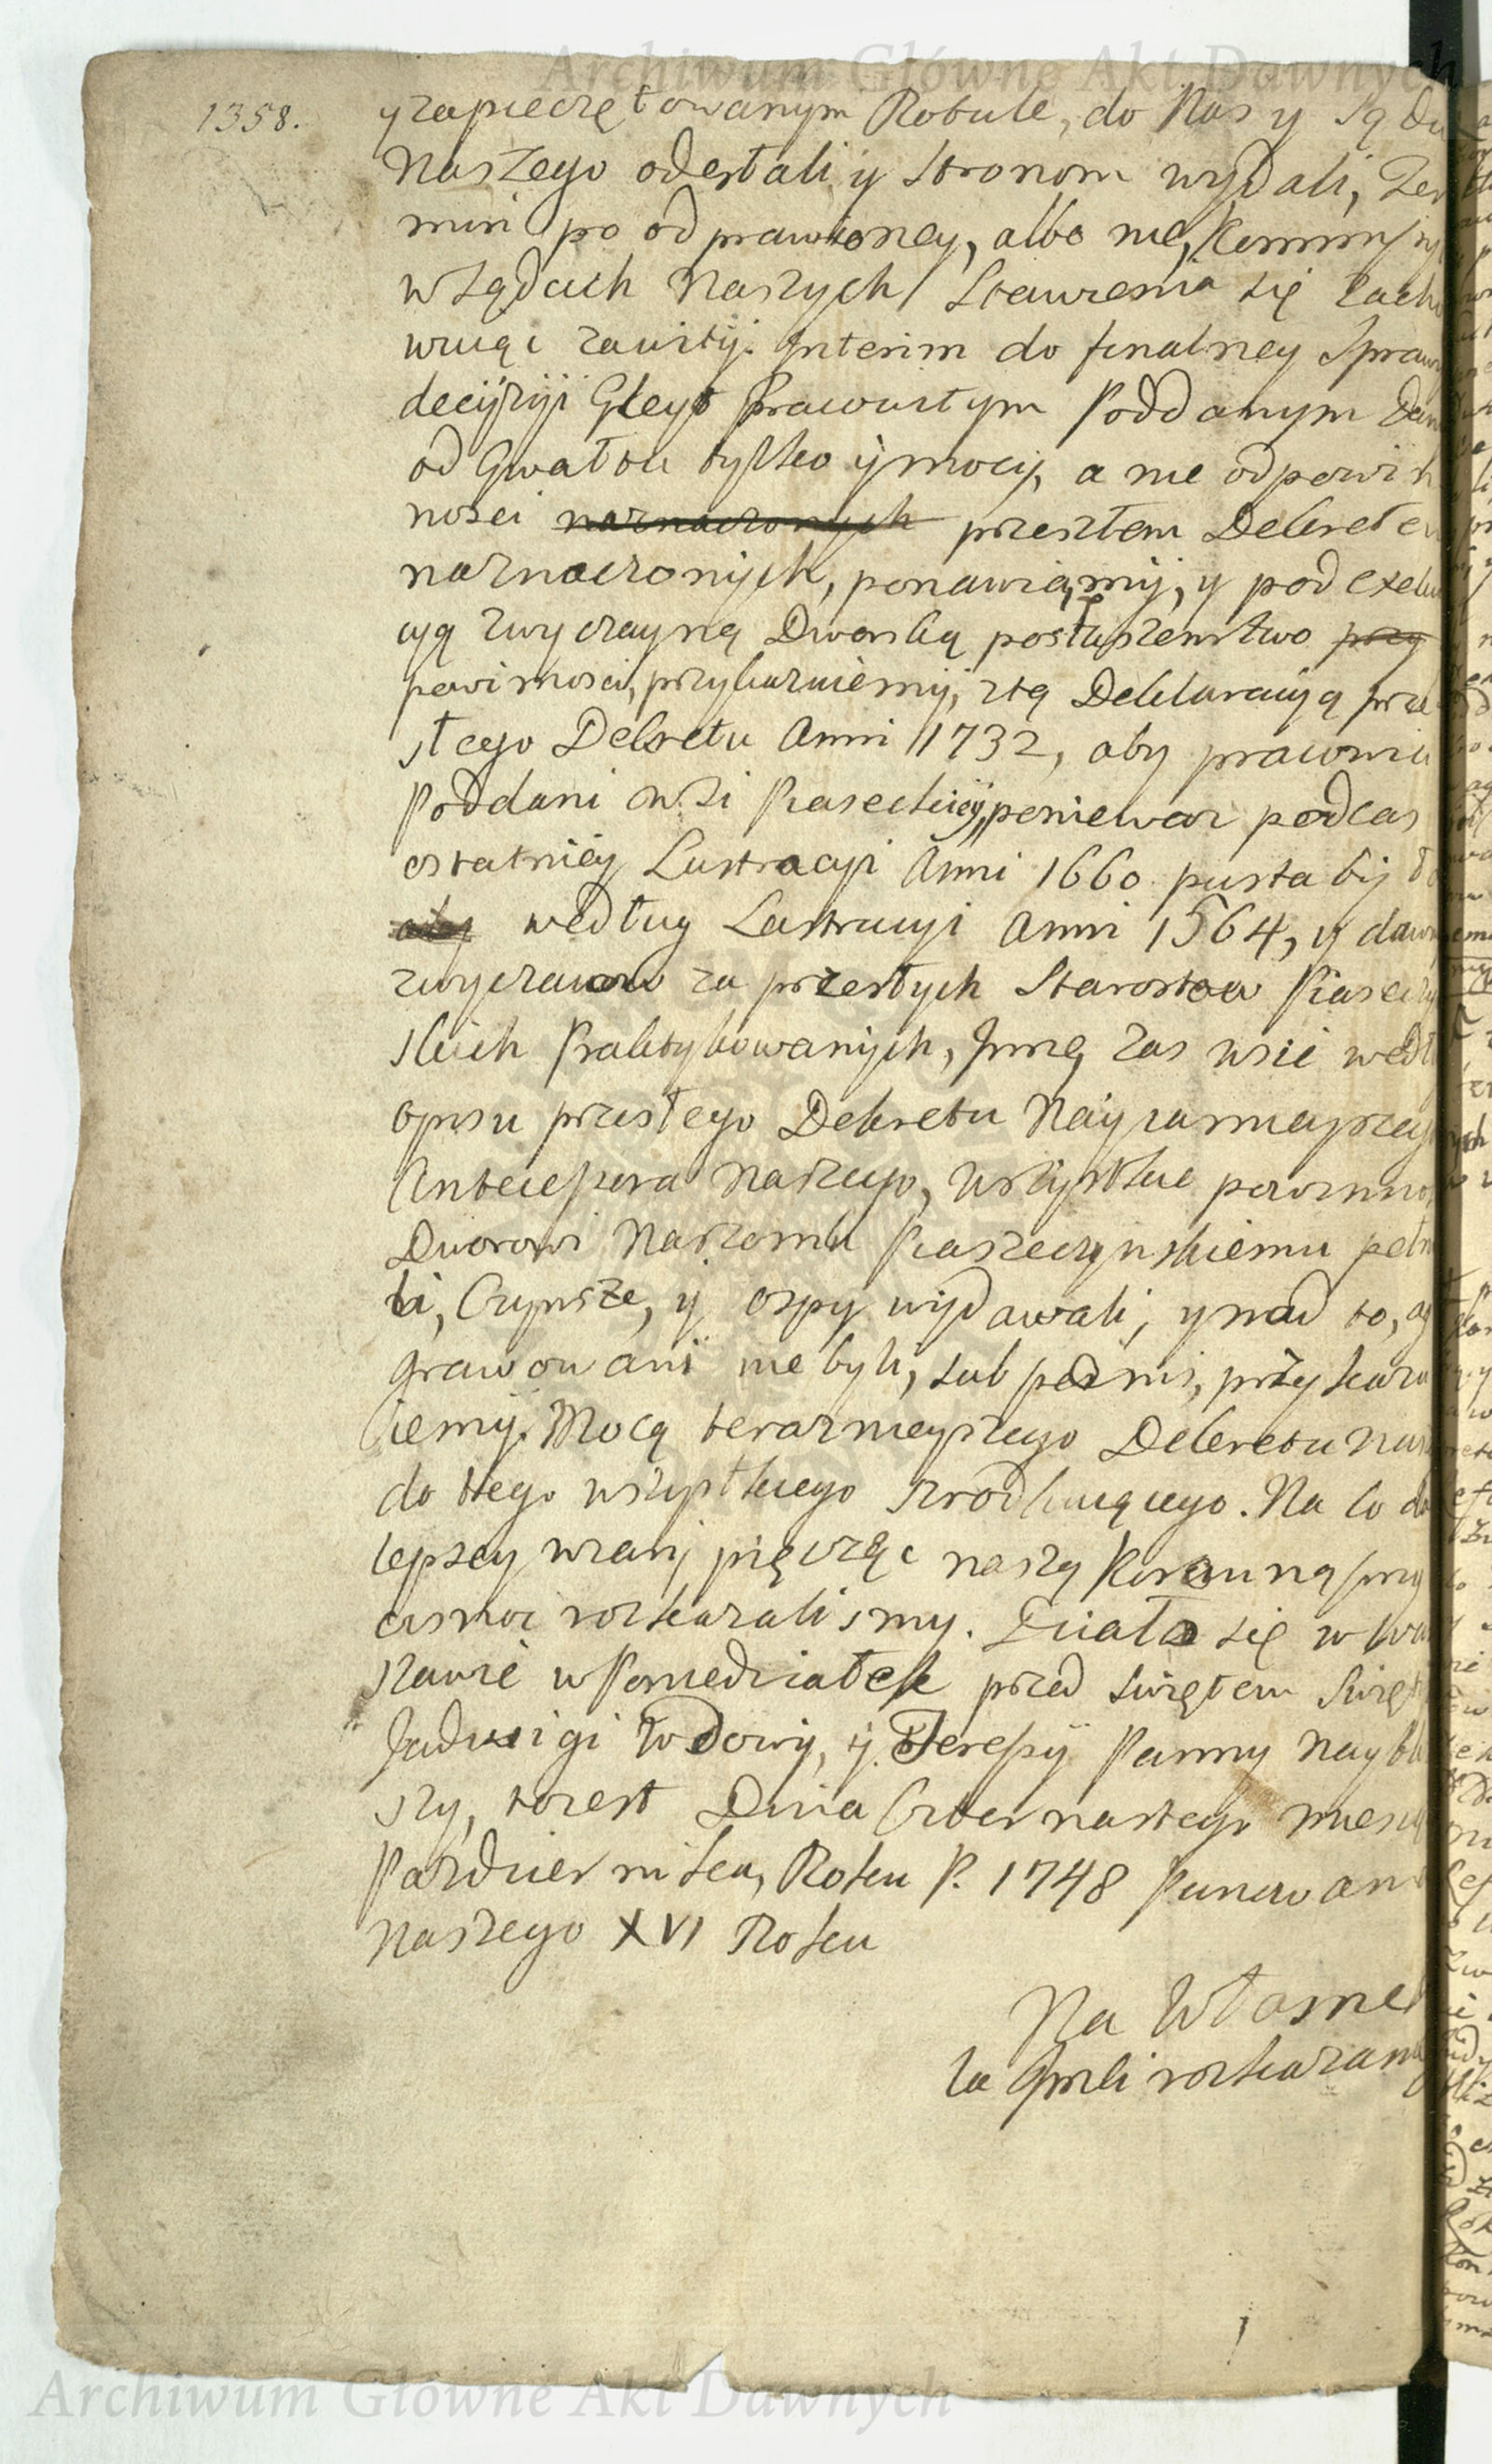 Archiwum Główne Akt Dawnych
1358.
y zapieczętowanym Rotule, do Nas y Sądu
Naszego odesłali y Stronom wydali, Ter
min po odprawioney, albo nie, Kommissyi
w Sądach Naszych Stawienia się zacho
wuiąc zawity. Interim do finalney Sprawy
decyzyi Gleyt Prawuiącym Poddanym Dan
od Gwałtu tylko y mocy, a nie od powin
ności naznaczonych przeszłem Dekretem
naznaczonych, ponawiamy, y pod exeku
cyą zwyczayną Dworską posłuszenstwo przy
powinnosci, przykazuiemy, z tą Deklaracyą prze
szłego Dekretu Anni 1732, aby prawuiący
Poddani wsi Piaseckiey, poniewaz podczas
ostatniey Lustracyi Anni 1660 pusta była
aby według Lustracyi Anni 1564, y dawn
zwyczaiow za przeszłych Starostow Piaseczyn
skich Praktykowanych, Inne zas wsie wedł
opisu przeszłego Dekretu Nayiasnieyszego
Antecessora Naszego, wszystkie powinno
Dworowi Naszemu Piaseczynskiemu pełni
li, Czynsze, y ospy wydawali, y nad to, ag
grawowani nie byli, sub poenis, przykazu
iemy. Mocą teraznieyszego Dekretu Nasz
do tego wszystkiego Srzodkuiącego. Na co dla
lepszey wiary pieczęc naszą Koronną przy
cisnąc rozkazalismy. Działo się w War
szawie w Poniedziałek przed Swiętem Swięt
Jadwigi Wdowy, y Teressy Panny Nayblis
szy, to iest Dnia Czternastego miesiąca
Pazdziernika, Roku P. 1748 Panowania
Naszego XVI Roku
Na Własne
la Jmci rozkazanie
Archiwum Główne Akt Dawnych